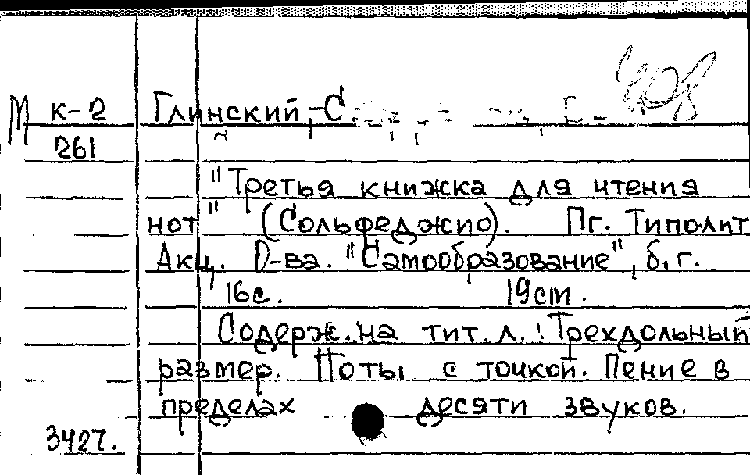 М К-2 Глинский, С. 408
261
"Третья книжка для чтения
нот" (Сольфеджио). Пг. Типолит
Акц. О-ва. "Самообразование", б.г.
16с. 19cm.
Содерж. на тит. л.: Трехдольный
размер. Ноты с точкой. Пение в
пределах десяти звуков.
3427.